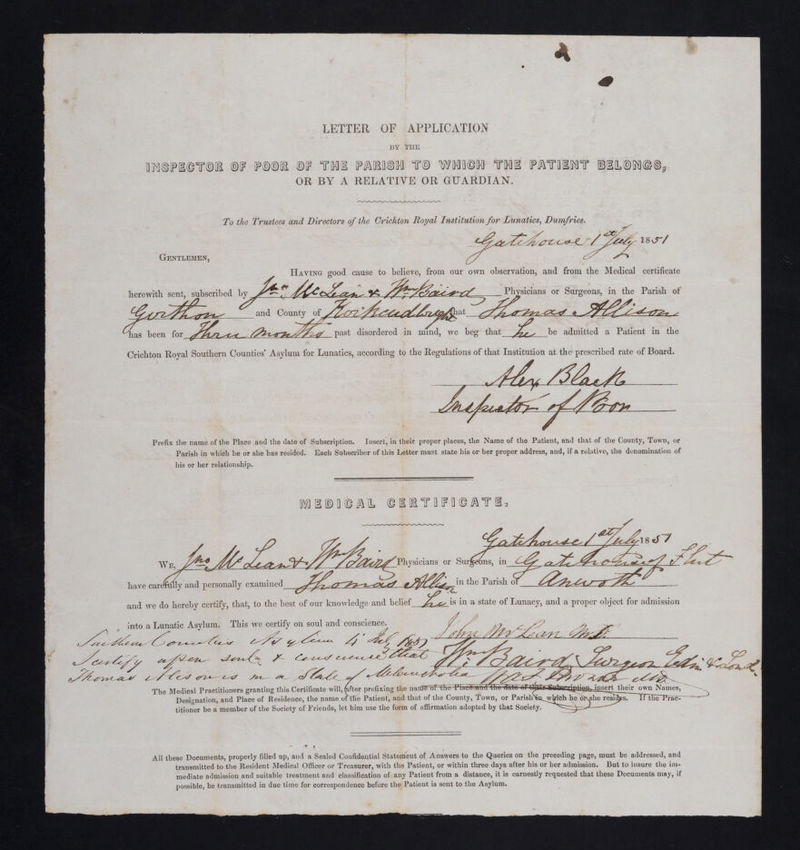 LETTER OF APPLICATION
BY THE
INSPECTOR OF POOR OF THE PARISH TO WHICH THE PATIENT BELONGS,
OR BY A RELATIVE OR GUARDIAN.
To the Trustees and Directors of the Crichton Royal Institution for Lunatics, Dumfries.
Gatehouse 1st July 1851
GENTLEMEN,
HAVING good cause to believe, from our own observation, and from the Medical certificate
herewith sent, subscribed by Jno McLean & Wm Baird Physicians or Surgeons, in the Parish of
Girthon and County of Kirkcudbright that Thomas Allison
has been for Three months past disordered in mind, we beg that he be admitted a Patient in the
Crichton Royal Southern Counties' Asylum for Lunatics, according to the Regulations of that Institution at the prescribed rate of Board.
Alex Black
Inspector of Poor
Prefix the name of the Place and the date of Subscription. Insert, in their proper places, the Name of the Patient, and that of the County, Town, or
Parish in which he or she has resided. Each Subscriber of this Letter must state his or her proper address, and, if a relative, the denomination of
his or her relationship.
MEDICAL CERTIFICATE.
Gatehouse 1st July 1851
WE, Jno McLean & Wm Baird Physicians or Surgeons, in Gatehouse of Fleet
have carefully and personally examined Thomas Allison in the Parish of Anwoth
and we do hereby certify, that, to the best of our knowledge and belief he is in a state of Lunacy, and a proper object for admission
into a Lunatic Asylum. This we certify on soul and conscience.
John McLean M.D.
Southern Counties Asylum 1851
I certify upon soul & conscience that Wm Baird Surgeon Edin & Lond
Thomas Alison is in a State of Melancholia
The Medical Practitioners granting this Certificate will, after prefixing the name of the Place and the date of their Subscription, insert their own Names,
Designation, and Place of Residence, the name of the Patient, and that of the County, Town, or Parish in which he or she resides. If the Prac-
titioner be a member of the Society of Friends, let him use the form of affirmation adopted by that Society.
All these Documents, properly filled up, and a Sealed Confidential Statement of Answers to the Queries on the preceding page, must be addressed, and
transmitted to the Resident Medical Officer or Treasurer, with the Patient, or within three days after his or her admission. But to insure the im-
mediate admission and suitable treatment and classification of any Patient from a distance, it is earnestly requested that these Documents may, if
possible, be transmitted in due time for correspondence before the Patient is sent to the Asylum.